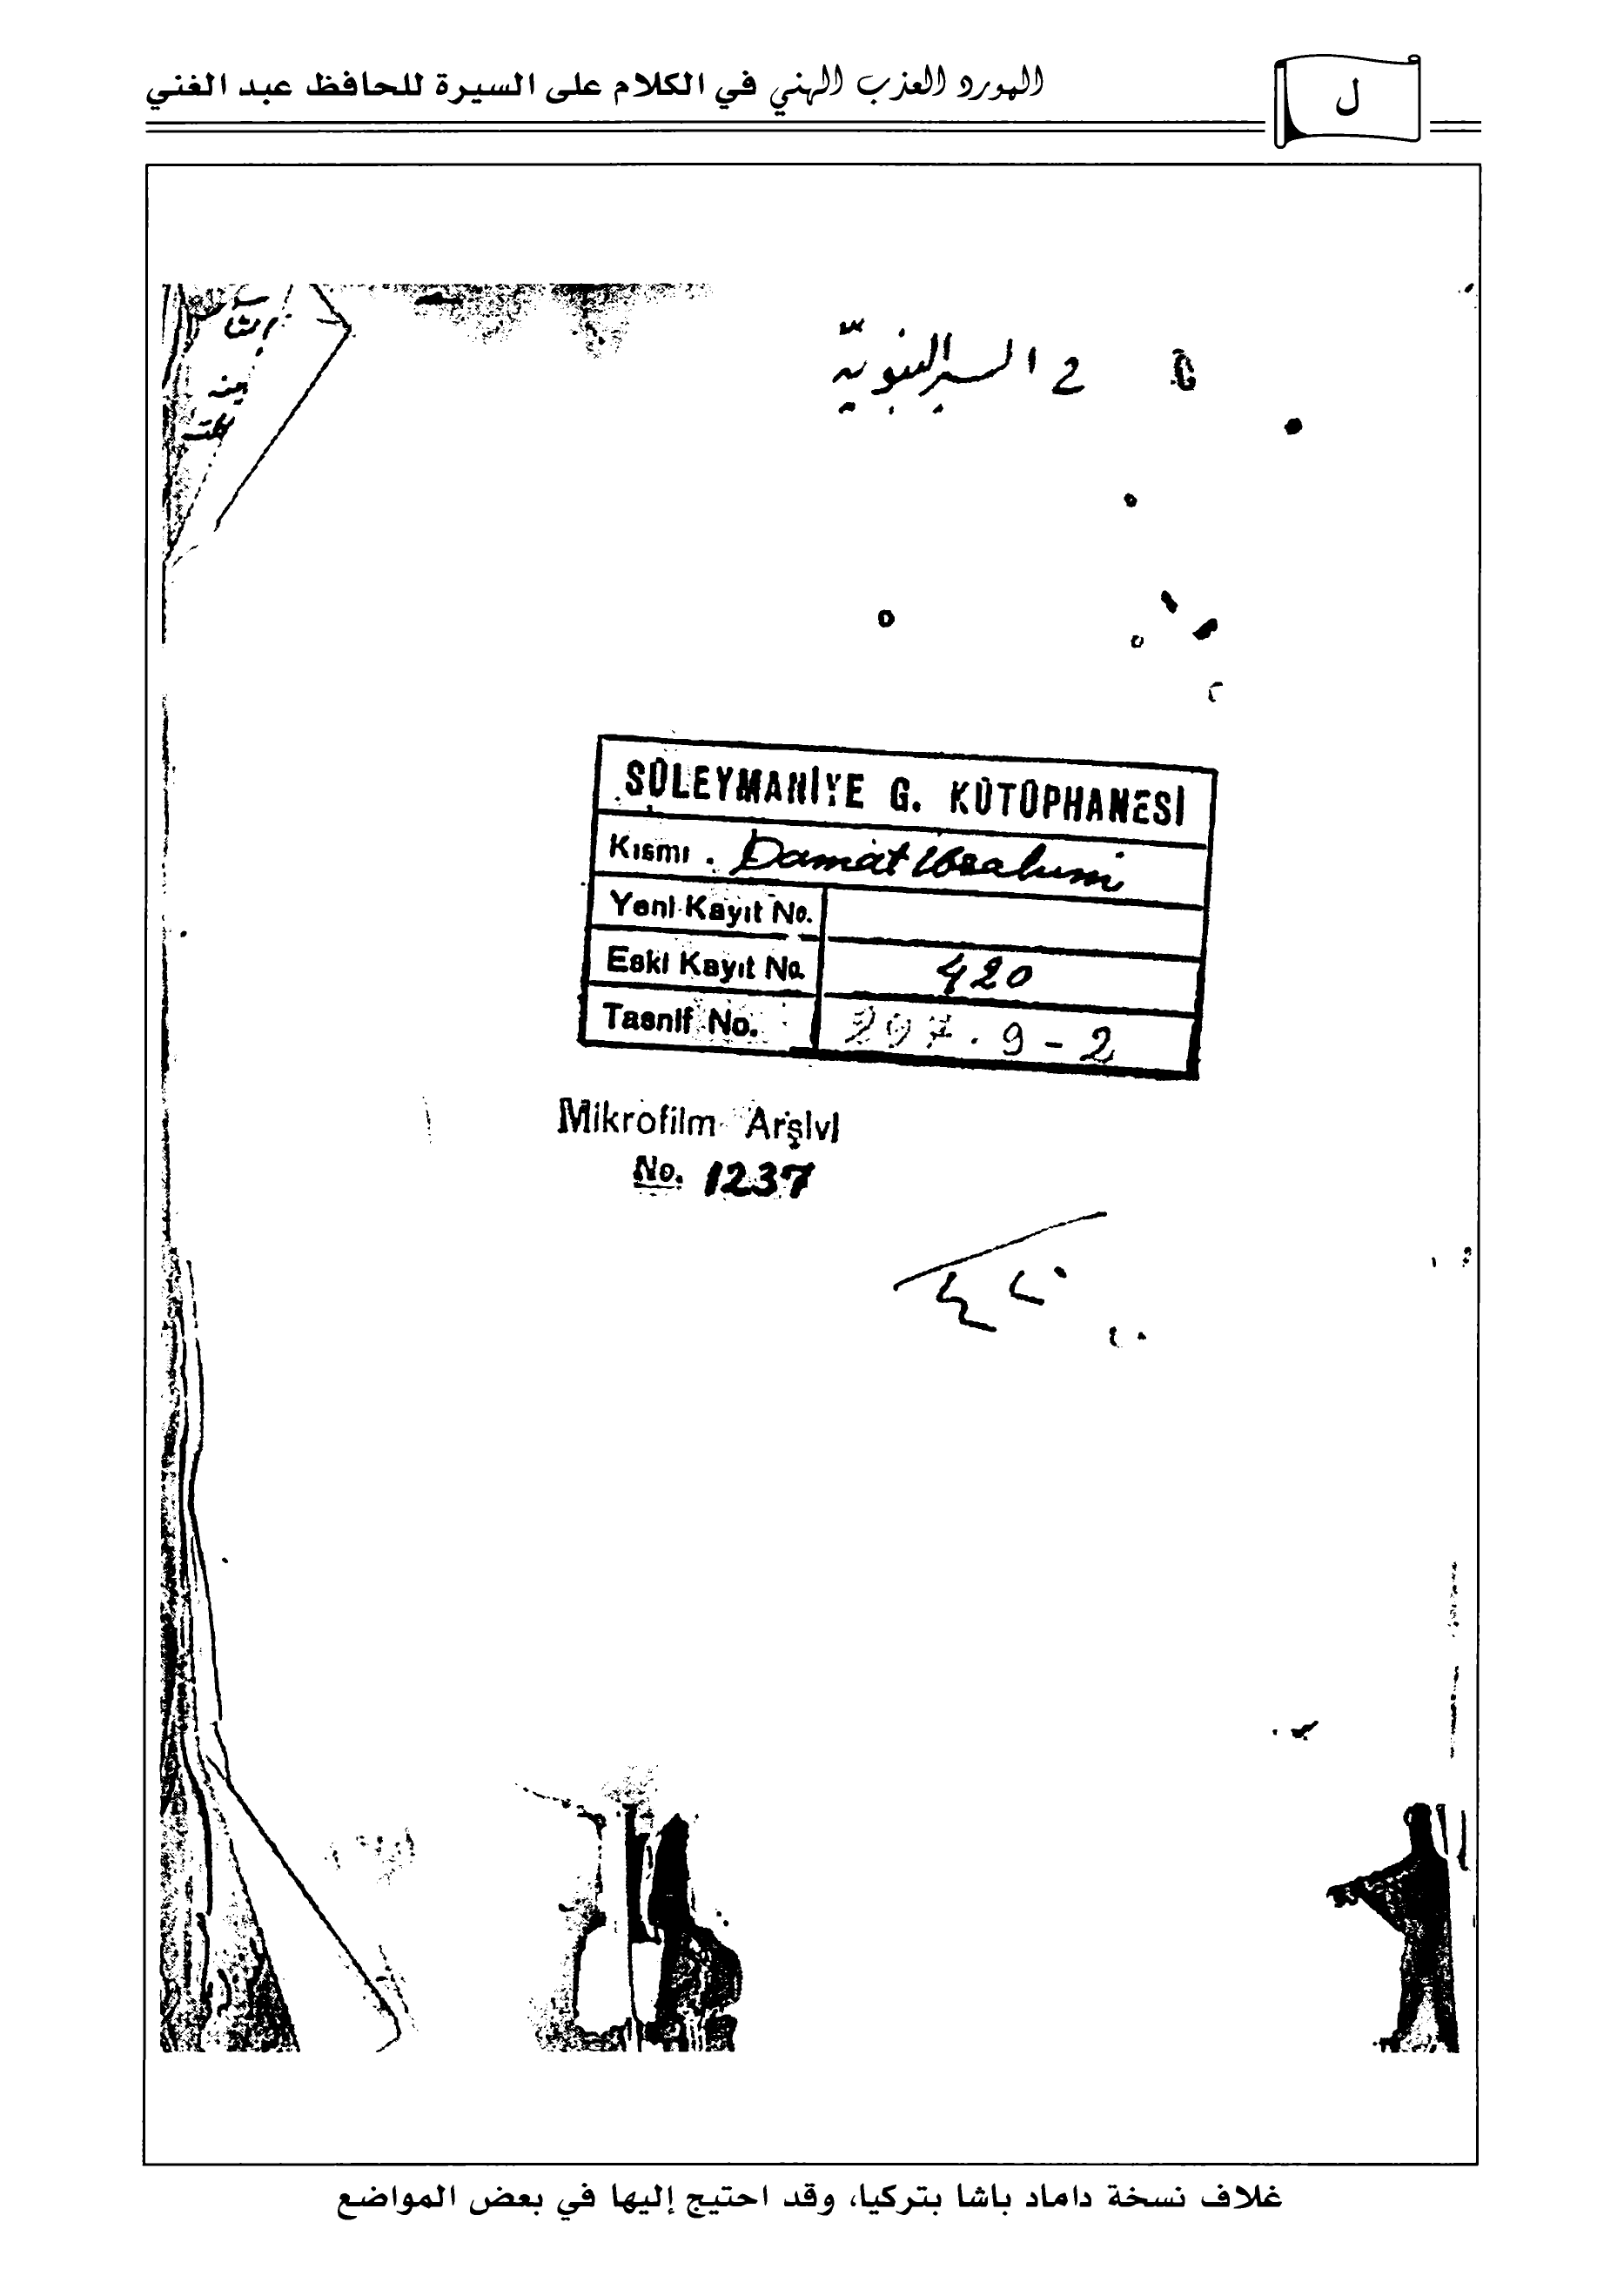 المورد العذب الهني في الكلام على السيرة للحافظ عبد الغني
ل
في السير النبوية
SÜLEYMANİYE G. KÜTÜPHANESİ
Kısmı . Damat İbrahim
Yeni Kayıt No.
Eski Kayıt No. 420
Tasnif No. 297.9-2
Mikrofilm Arşivi
No. 1237
غلاف نسخة داماد باشا بتركيا، وقد احتيج إليها في بعض المواضع